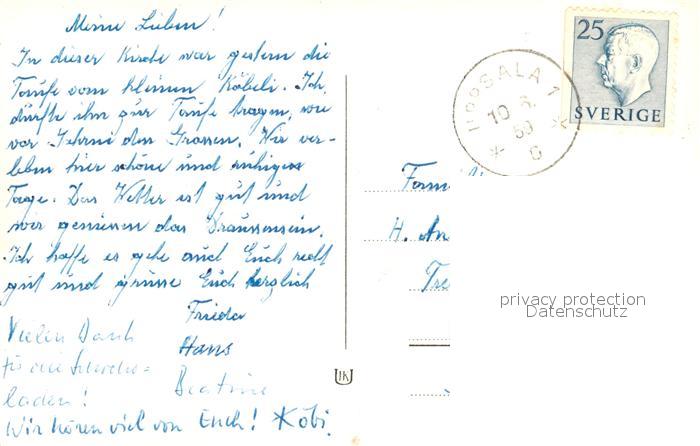 Meine Lieben!
In dieser Kirche war gestern die
Taufe vom kleinen Köbeli. Ich
durfte ihn zur Taufe tragen, wie
vor Jahren den Grossen. Wir ver-
leben hier schöne und ruhige
Tage. Das Wetter ist gut und
wir geniessen das Draussensein.
Ich hoffe es gehe auch Euch recht
gut und grüsse Euch herzlich
Frieda
Hans
Beatrice
Vielen Dank
für die
laden!
Wir hören viel von Euch! Köbi.
UPPSALA 1
10 6.
59
C
25
SVERIGE
H. An
privacy protection
Datenschutz